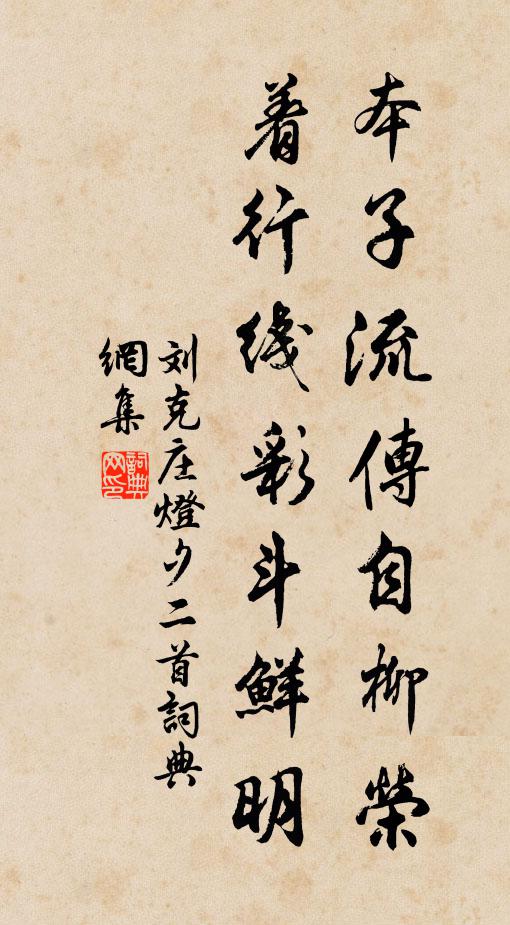 本子流傳自柳榮
着行綫彩斗鮮明
刘克庄燈夕二首詞典
網集
詞典网印